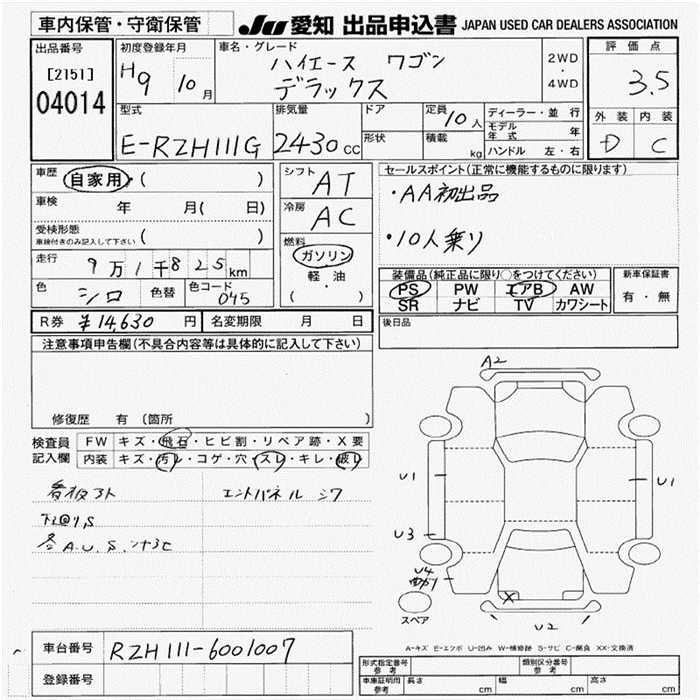 車内保管・守衛保管
JU 愛知 出品申込書 JAPAN USED CAR DEALERS ASSOCIATION
出品番号
[2151]
04014
初度登録年月
H9 10月
車名・グレード
ハイエース ワゴン
デラックス
2WD
・
4WD
評価点
3.5
外装 内装
D C
型式
E-RZH111G
排気量
2430cc
ドア
形状
定員
10人
積載
kg
ディーラー・並行
モデル年式 年
ハンドル 左・右
車歴
自家用 ( )
車検 年 月( 日)
受検形態
車検付きのみ記入して下さい ( )
走行
9万1千825km
色 シロ 色替 色コード 045
R券 ¥14,630 円 名変期限 月 日
シフト AT
冷房 AC
燃料
ガソリン
軽・油
( )
セールスポイント(正常に機能するものに限ります)
・AA初出品
・10人乗り
装備品(純正品に限り○をつけてください)
PS PW エアB AW
SR ナビ TV カワシート
新車保証書
有・無
後日品
注意事項申告欄(不具合内容等は具体的に記入して下さい)
修復歴 有 (箇所 )
検査員
記入欄
FW キズ・飛石・ヒビ割・リペア跡・X要
内装 キズ・汚レ・コゲ・穴・スレ・キレ・破レ
看板アト
エンドパネル シワ
各A.U.S.
A2
U1
U1
U3
U4
X
U2
スペア
A-キズ E-エクボ U-凹み W-補修跡 S-サビ C-腐食 XX-交換済
車台番号 RZH111-6001007
登録番号
形式指定番号
参考
類別区分番号
参考
車庫証明用
参考
長さ cm 幅 cm 高さ cm